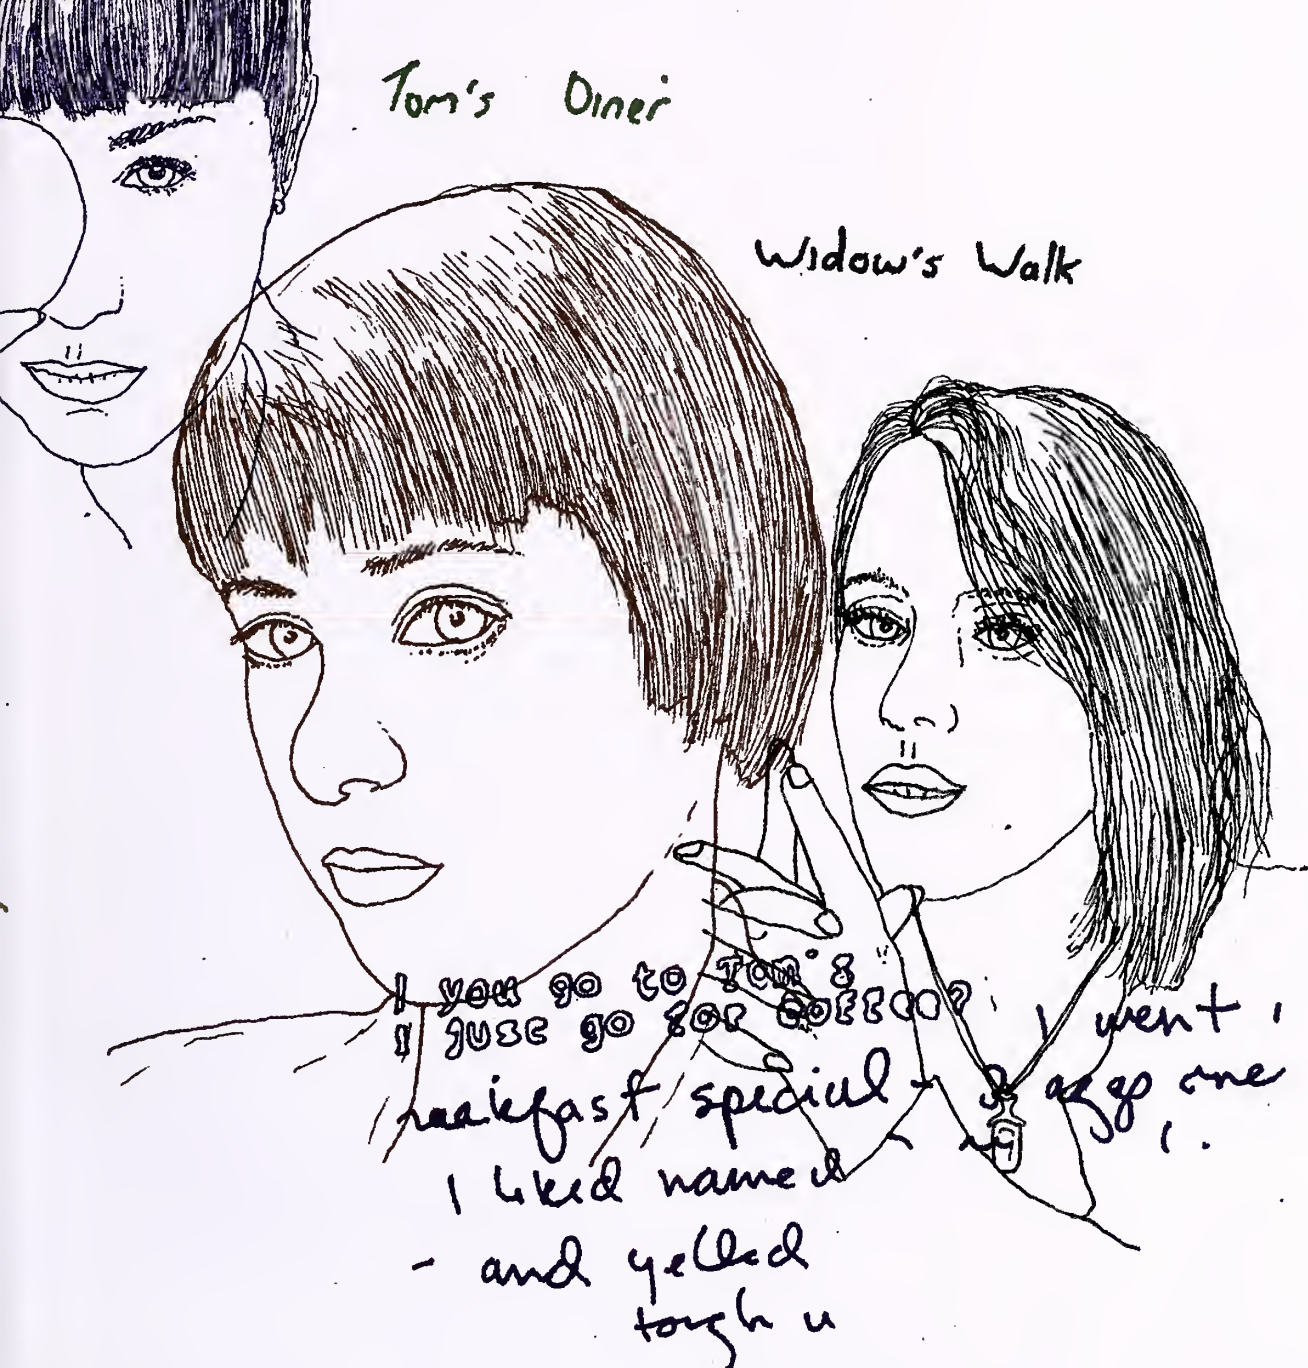 Tom's Diner
Widow's Walk
I you go to Tom's
I just go for coffee?
I went
special - 3 eggs
I liked named
- and yelled
tough u